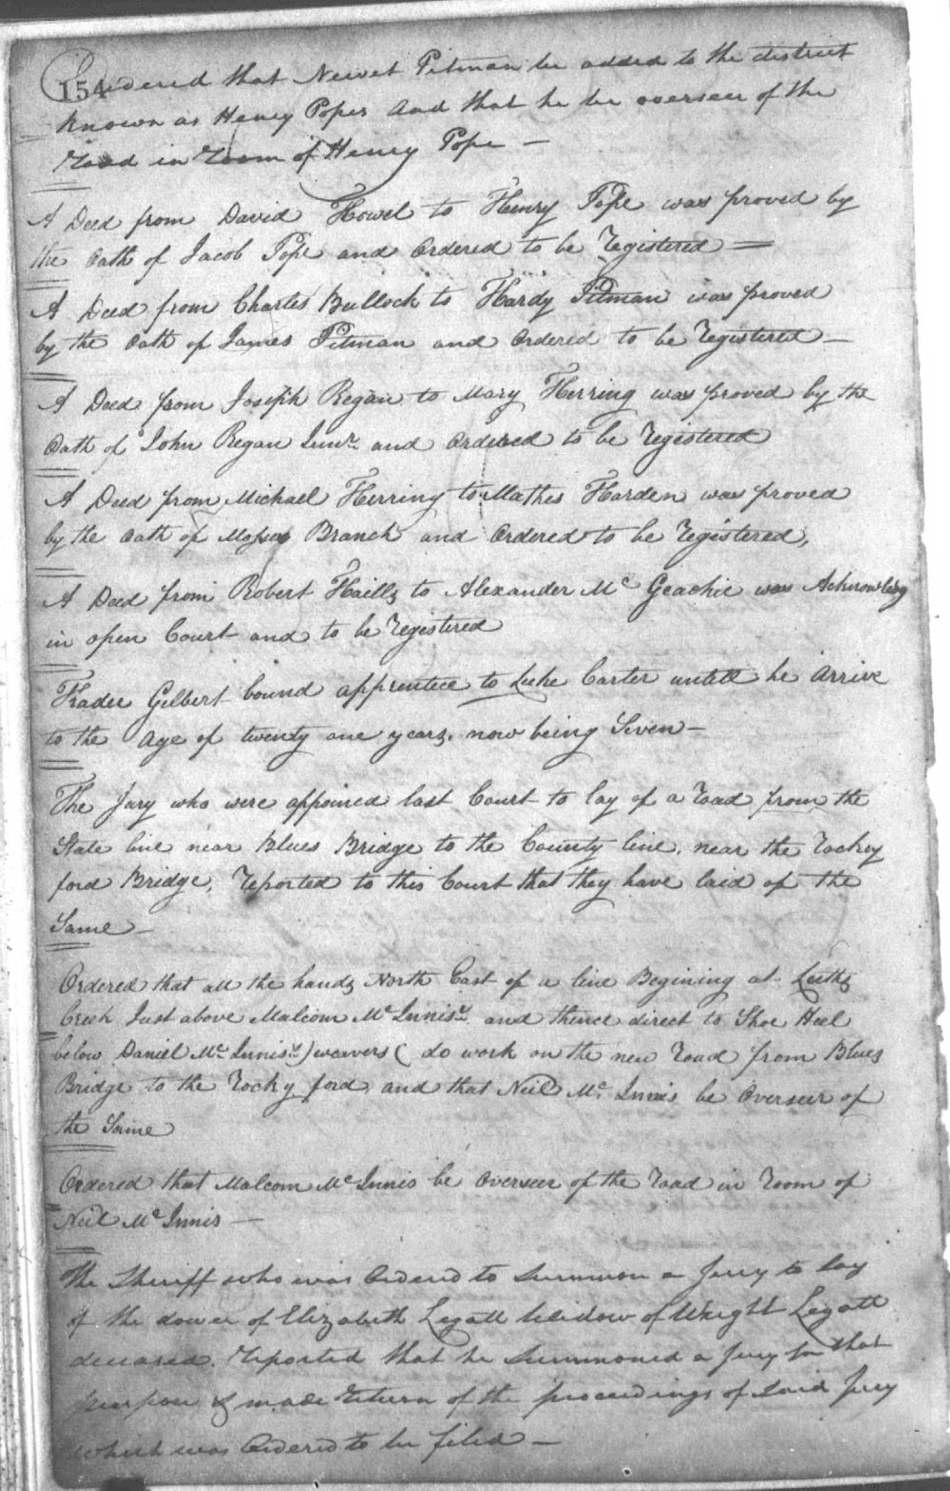 154
Ordered that Newet Pitman be added to the district
known as Henry Popes and that he be overseer of the
road in room of Henry Pope —
A Deed from David Howel to Henry Pope was proved by
the Oath of Jacob Pope and Ordered to be registered =
A Deed from Charles Bullock to Hardy Pitman was proved
by the Oath of James Pitman and Ordered to be registered —
A Deed from Joseph Regan to Mary Herring was proved by the
Oath of John Regan Junr and Ordered to be registered
A Deed from Michael Herring to Mathis Harden was proved
by the Oath of Moses Branch and Ordered to be registered,
A Deed from Robert Hails to Alexander Mc Geachie was Acknowledg
in open Court and to be registered
Kader Gilbert bound apprentice to Luke Carter untill he arrive
to the Age of twenty one years, now being Seven —
The Jury who were appoined last Court to lay of a road from the
State line near Blues Bridge to the County line, near the rockey
ford Bridge, reported to this Court that they have laid of the
Same —
Ordered that all the hands North East of a line Begining at Leiths
Creek Just above Malcom Mc Innis's and thence direct to Shoe Heel
below Daniel Mc Innis's ) weavers ( do work on the new road from Blues
Bridge to the rocky ford and that Neil Mc Innis be Overseer of
the Same
Ordered that Malcom Mc Innis be Overseer of the road in room of
Neil Mc Innis —
The Sheriff who was Ordered to Summon a Jury to lay
of the dower of Elizabeth Legatt Widow of Wright Legatt
deceased. reported that he Summoned a Jury for that
purpose & made return of the proceedings of said Jury
which was Ordered to be filed —